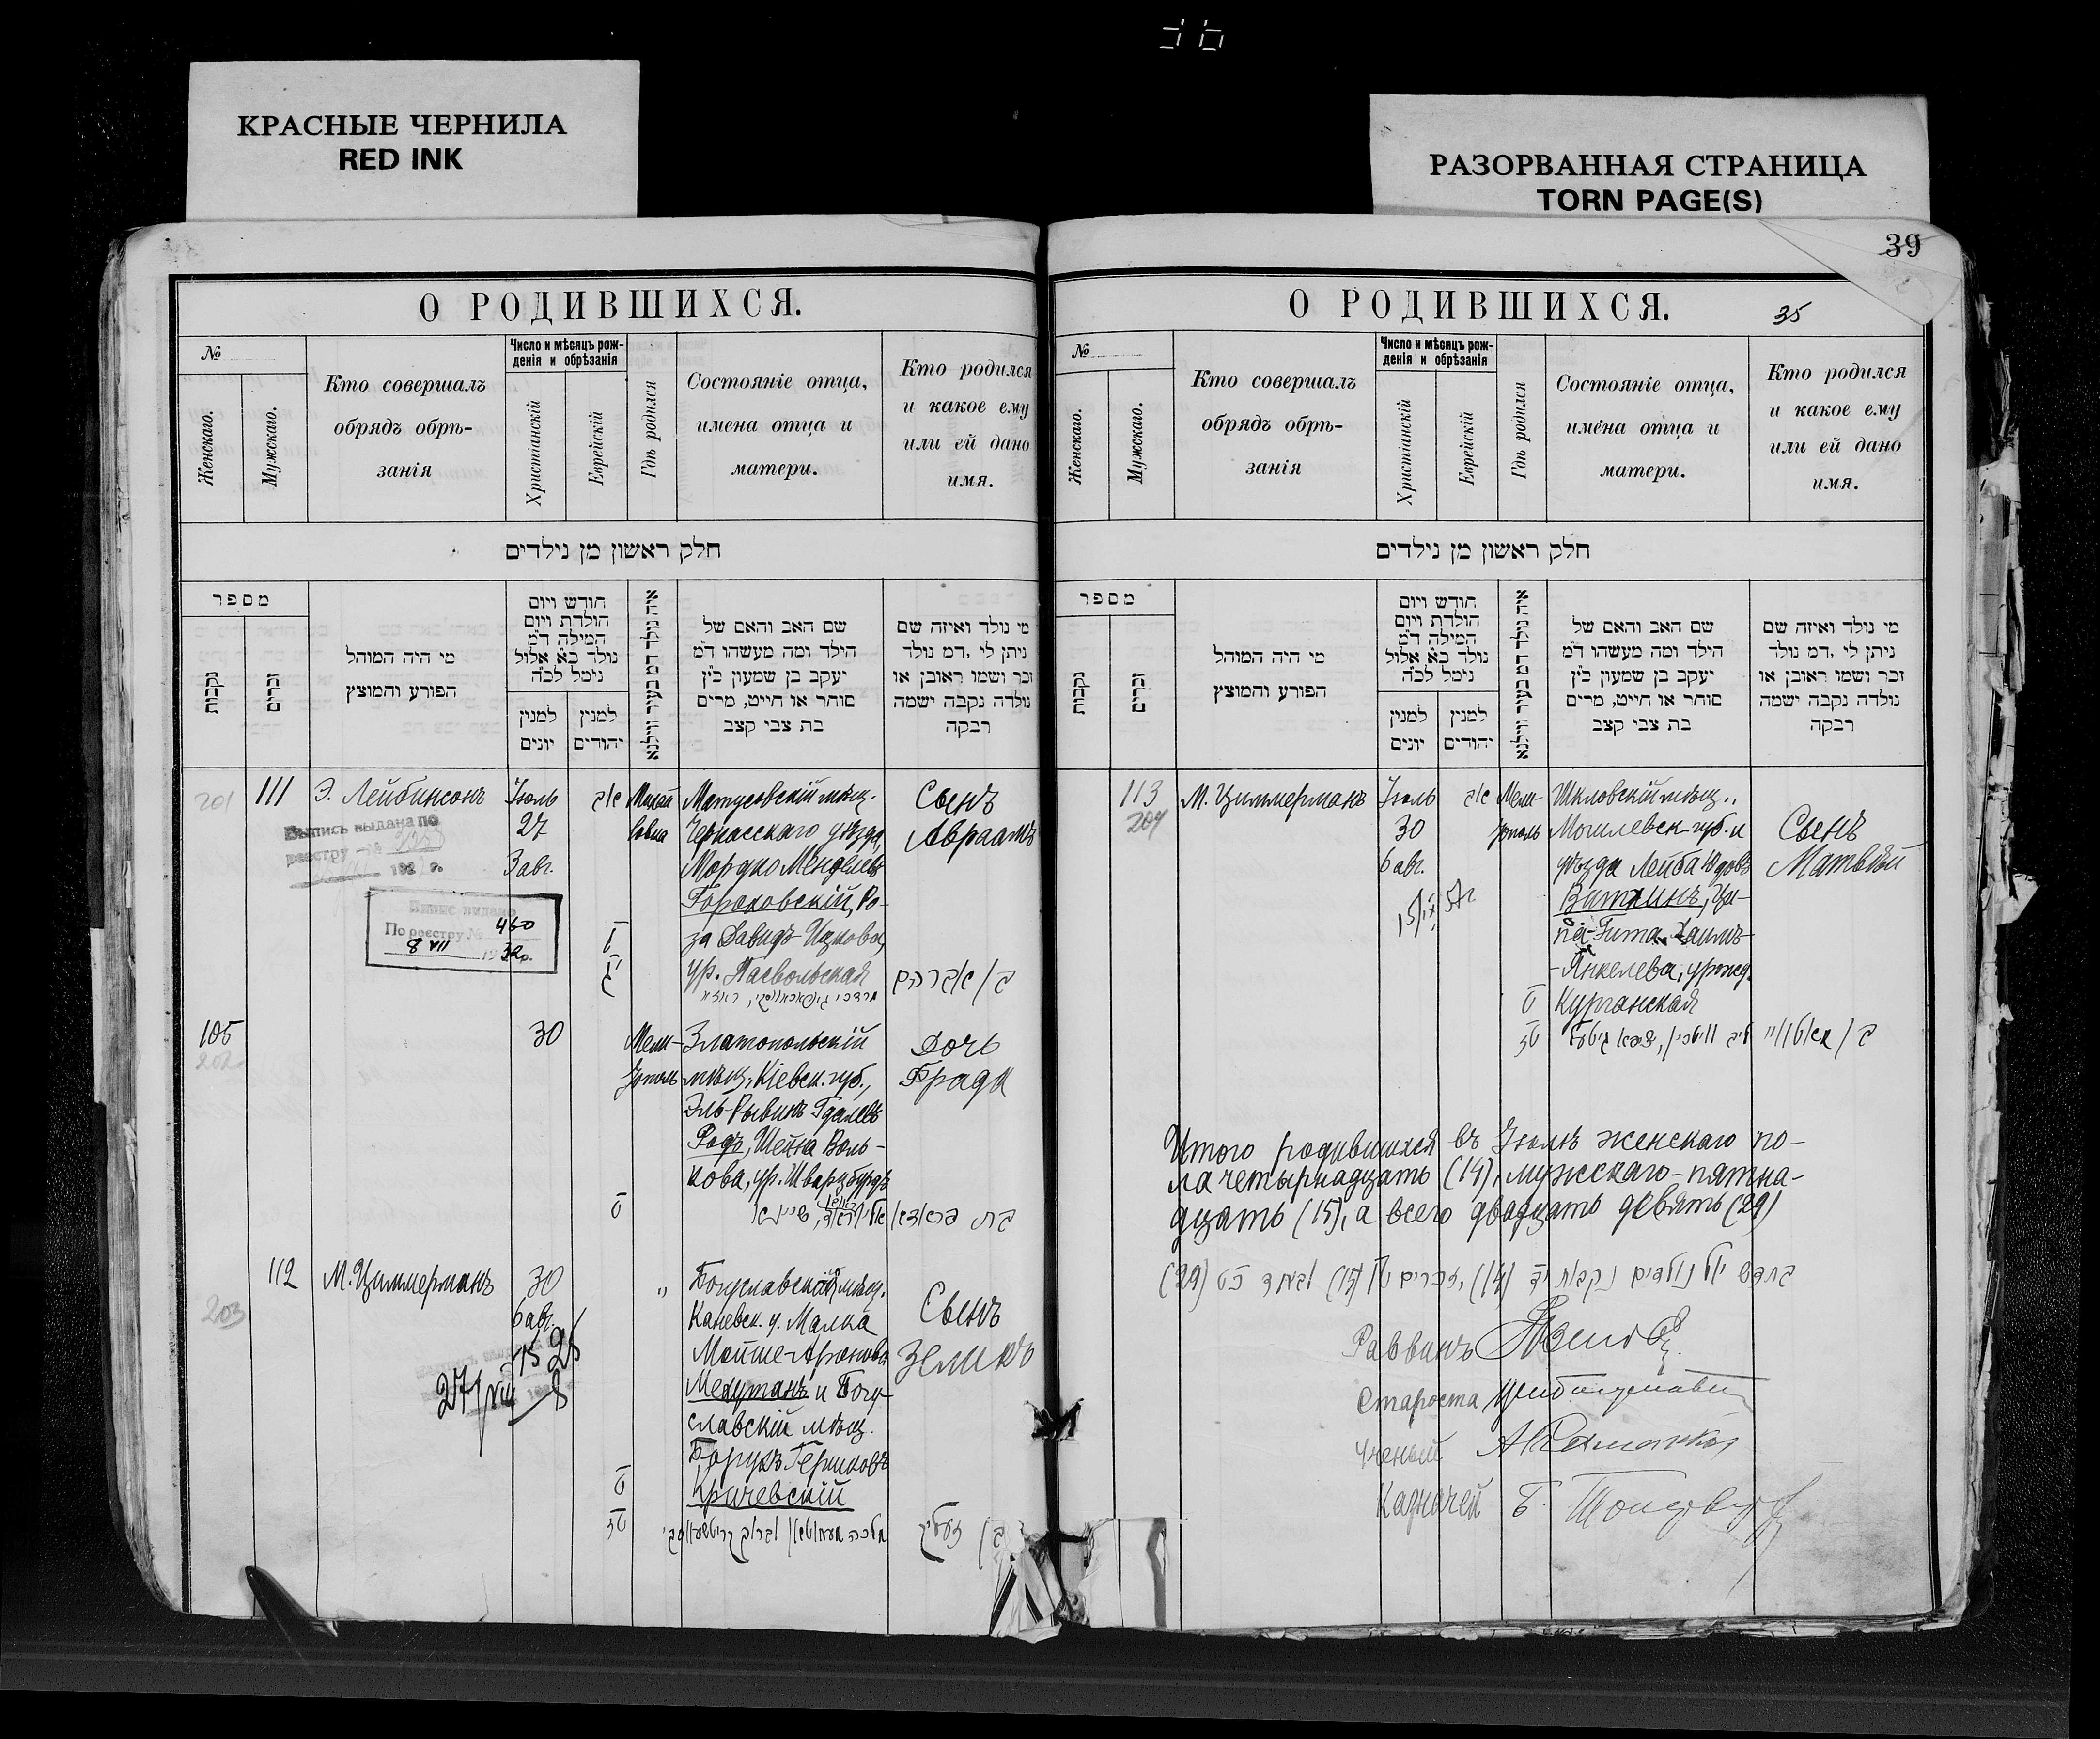 КРАСНЫЕ ЧЕРНИЛА
RED INK
РАЗОРВАННАЯ СТРАНИЦА
TORN PAGE(S)
О РОДИВШИХСЯ.
№
Женскаго.
Мужскаго.
Кто совершалъ
обрядъ обрѣ-
занія
Число и мѣсяцъ рож-
денія и обрѣзанія
Христіанскій
Еврейскій
Гдѣ родился
Состояніе отца,
имена отца и
матери.
Кто родился
и какое ему
или ей дано
имя.
חלק ראשון מן נילדים
מספר
נקבות
זכרים
מי היה המוהל
הפורע והמוצץ
חודש ויום
הולדת ויום
המילה ד״מ
נולד כא אלול
נימל לכ״ה
למנין
יונים
למנין
יהודים
איה נולד דמ בעיר ווילנא
שם האב והאם של
הילד ומה מעשהו ד״מ
יעקב בן שמעון כ״ץ
סוחר או חייט, מרים
בת צבי קצב
מי נולד ואיזה שם
ניתן לי, דמ נולד
זכר ושמו ראובן או
נולדה נקבה ישמה
רבקה
201
111
Э. Лейбинсонъ
Іюль
27
3 авг.
אב
Матусовскій мѣщ.
Черкасскаго уѣзда,
Мордко Менделевъ
Гороховскій, Ро-
за Давидъ-Ицкова,
ур.
Сынъ
Авраамъ
ב/ אברהם
Выпись выдана по
реестру №
По реестру № 460
8 VII
105
202
30
Мели-
тополь
Златопольскій
мѣщ. Кіевск. губ.,
Эль-Рывинъ Гдалевъ
Родъ, Шейна Воль-
кова, ур. Шварцбурдъ
Дочь
Брада
112
203
М. Циммерманъ
30
6 авг.
"
Богуславскій мѣщ.
Каневск. у. Малка
Мойше-Аронова
Межутанъ и Богу-
славскій мѣщ.
Борухъ Гершковъ
Кричевскій
Сынъ
Зеликъ
ב/ זעליק
39
О РОДИВШИХСЯ.
35
№
Женскаго.
Мужскаго.
Кто совершалъ
обрядъ обрѣ-
занія
Число и мѣсяцъ рож-
денія и обрѣзанія
Христіанскій
Еврейскій
Гдѣ родился
Состояніе отца,
имена отца и
матери.
Кто родился
и какое ему
или ей дано
имя.
חלק ראשון מן נילדים
מספר
נקבות
זכרים
מי היה המוהל
הפורע והמוצץ
חודש ויום
הולדת ויום
המילה ד״מ
נולד כא אלול
נימל לכ״ה
למנין
יונים
למנין
יהודים
איה נולד דמ בעיר ווילנא
שם האב והאם של
הילד ומה מעשהו ד״מ
יעקב בן שמעון כ״ץ
סוחר או חייט, מרים
בת צבי קצב
מי נולד ואיזה שם
ניתן לי, דמ נולד
זכר ושמו ראובן או
נולדה נקבה ישמה
רבקה
113
204
М. Циммерманъ
Іюль
30
6 авг.
אב
Мели-
тополь
Шкловскій мѣщ.,
Могилевск. губ. и
уѣзда Лейба Юдовъ
Виткинъ, Ци-
па-Гита Хаимъ-
-Янкелева, урожд.
Курганская
Сынъ
Матвѣй
Итого родившихся въ Іюлѣ женскаго по-
ла четырнадцать (14), мужскаго - пятна-
дцать (15), а всего двадцать девять (29)
בחדש יולי נולדים נקבות יד (14), זכרים טו (15) וביחד כט (29)
Раввинъ
Староста
Ученый
Казначей Б.